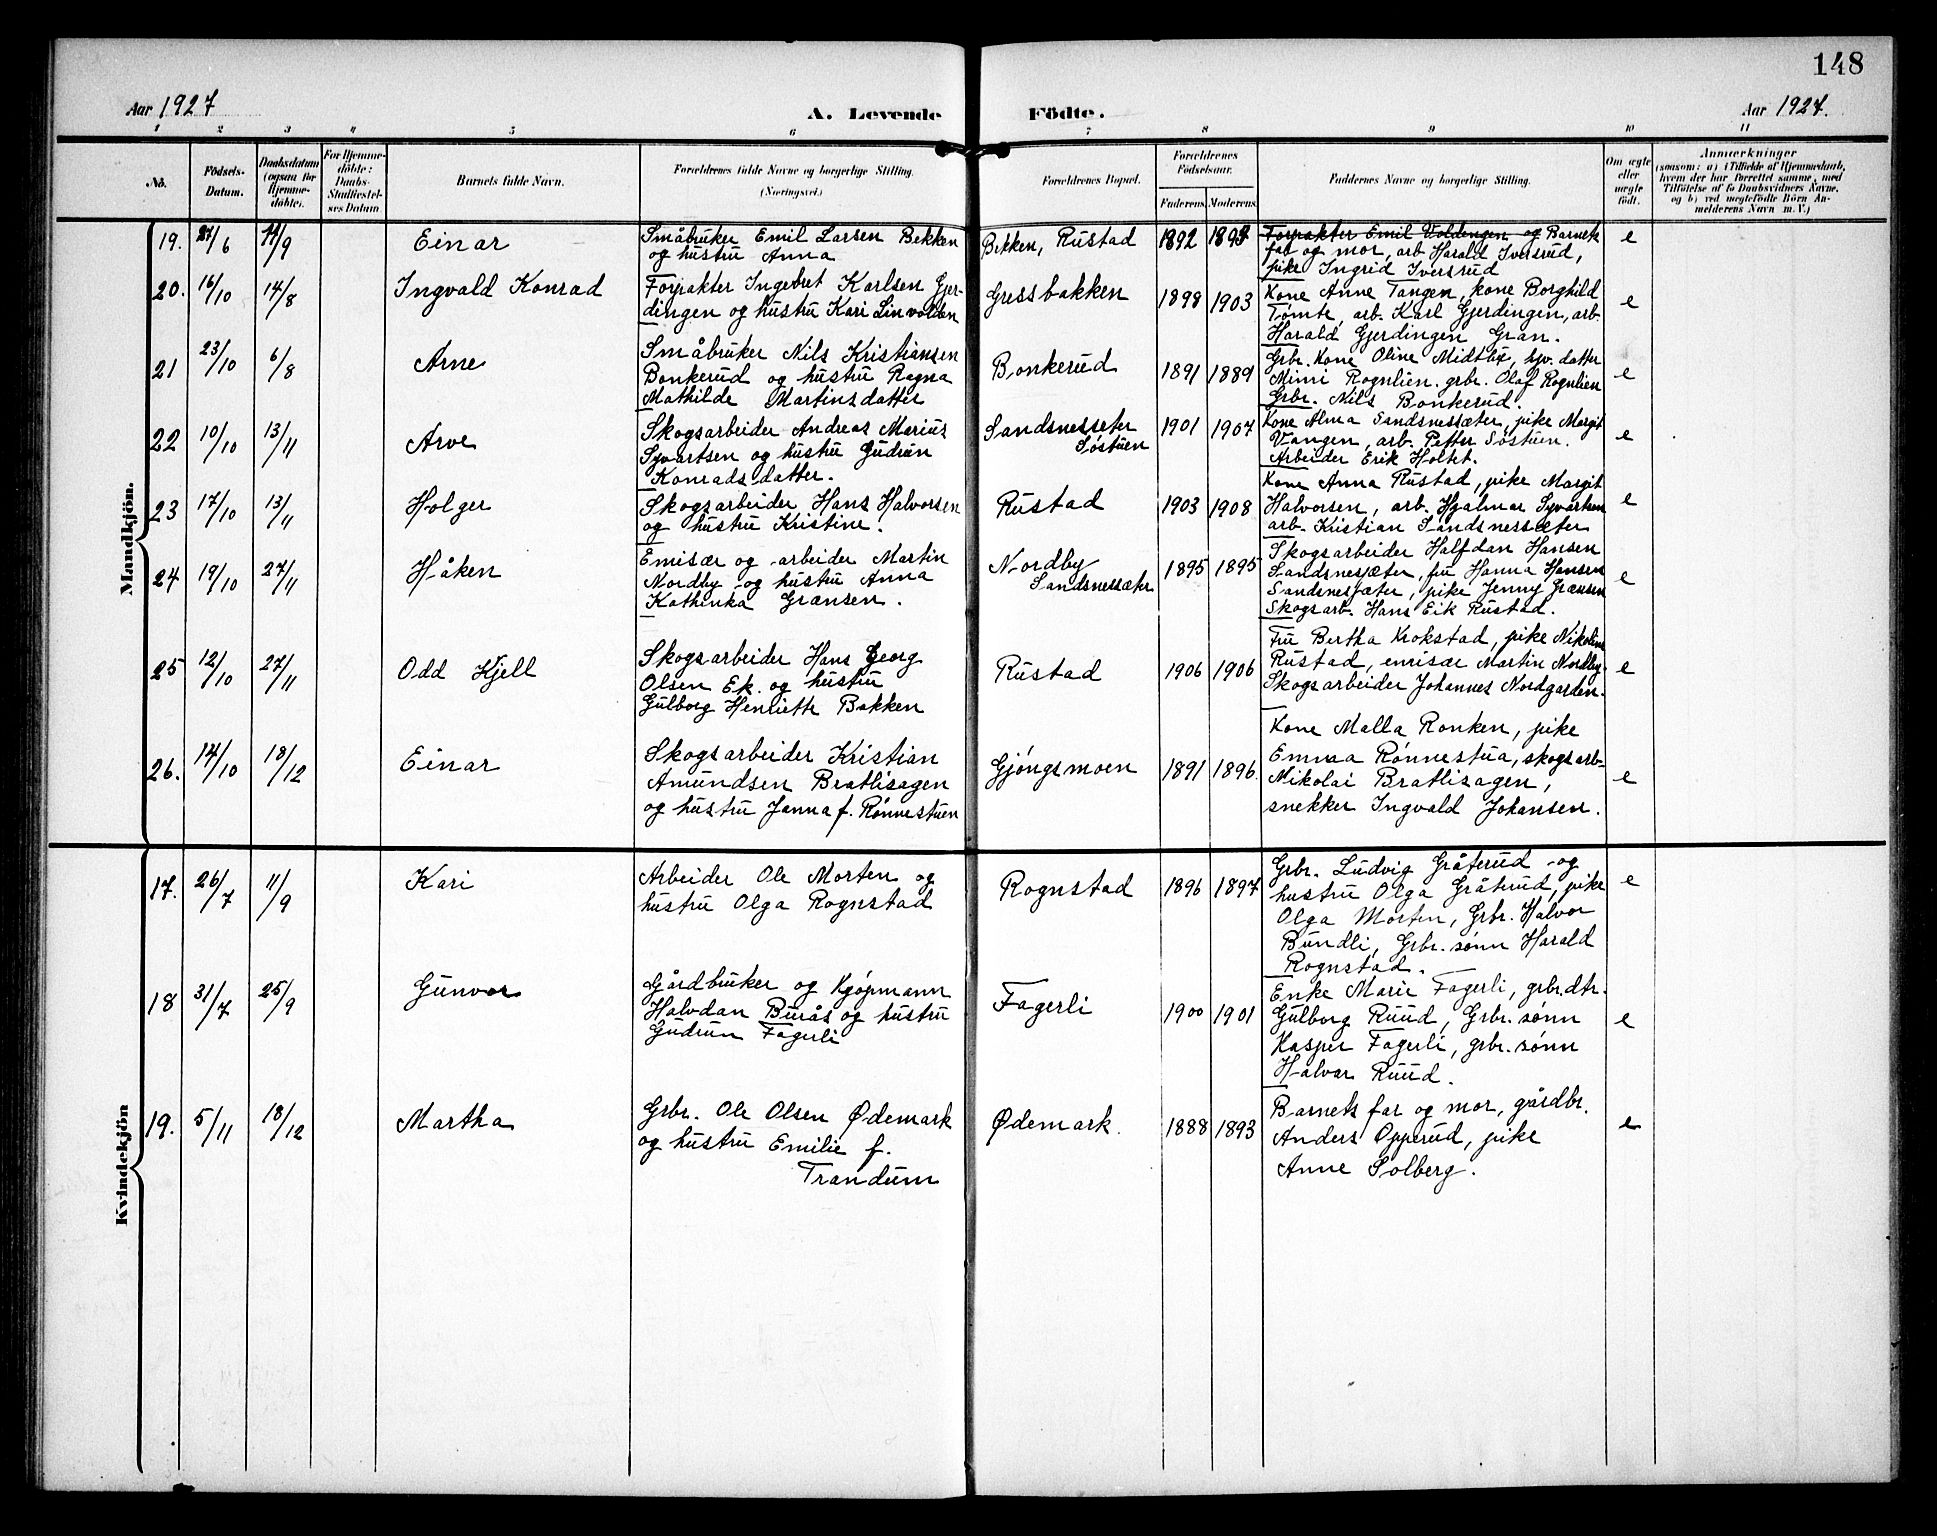 148
Aar 1927
A. Levende Födte.
Aar 1927.
1 2 3 4 5 6 7 8 9 10 11
No.
Födsels-Datum.
Daabsdatum (ogsaa for Hjemme-döbte).
For Hjemme-döbte: Daabs-Stadfæstel-ses Datum
Barnets fulde Navn.
Forældrenes fulde Navne og borgerlige Stilling.
(Næringsvei.)
Forældrenes Bopæl.
Forældrenes Födselsaar.
Faderens. Moderens.
Faddernes Navne og borgerlige Stilling.
Om ægte eller uægte födt.
Anmærkninger
(saasom: a) i Tilfælde af Hjemmedaab,
hvem der har forrettet samme, med
Tilföielse af to Daabsvidners Navne,
og b) ved uægtefödte Börn An-
melderens Navn m. V.)
Mandkjön.
19. 27/6 11/9 Einar
Småbruker Emil Larsen Bekken
og hustru Anna
Bekken, Rustad 1892 1897
Forpakter Emil Voldengen og Barnets
far og mor, arb Harald Iversrud,
pike Ingrid Iversrud
e
20. 16/10 14/8 Ingvald Konrad
Forpakter Ingebret Karlsen Gjer-
dingen og hustru Kari Linvolden
Gressbakken 1898 1903
Kone Anne Tangen, kone Borghild
Tømte, arb. Karl Gjerdingen, arb.
Harald Gjerdingen Gran.
e
21 23/10 6/8 Arne
Småbruker Nils Kristiansen
Bonkerud og hustru Ragna
Mathilde Martinsdatter
Bonkerud 1891 1889
Grbr. Kone Oline Midtby, hjv. datter
Mimi Rognlien. grbr. Olaf Rognlien
Grbr. Nils Bonkerud.
e
22 10/10 13/11 Arve
Skogsarbeider Andreas Marius
Syvartsen og hustru Gudrun
Konradsdatter.
Sandsnesseter
Søstuen
1901 1907
Kone Alma Sandsnessæter, pike Margit
Vangen, arb. Petter Søstuen.
Arbeider Erik Holtet.
e
23 17/10 13/11 Holger
Skogsarbeider Hans Halvorsen
og hustru Kristine.
Rustad 1903 1908
Kone Anna Rustad, pike Margit
Halvorsen, arb. Hjalmar Syvartsen
arb. Kristian Sandsnessæter
e
24 19/10 27/11 Håken
Emisær og arbeider Martin
Nordby og hustru Anna
Kathinka Grænsen.
Nordby
Sandsnessæter
1895 1895
Skogsarbeider Halfdan Hansen
Sandsnesjæter, fru Hanna Hansen
Sandsnesjæter, pike Jenny Grænsen
Skogsarb. Hans Eik Rustad.
e
25 12/10 27/11 Odd Kjell
Skogsarbeider Hans Georg
Olsen Ek. og hustru
Gulborg Henriette Bakken
Rustad 1906 1906
Fru Bertha Krokstad, pike Nikoline
Rustad, emisær Martin Nordby.
Skogsarbeider Johannes Nordgarden.
e
26. 14/10 18/12 Einar
Skogsarbeider Kristian
Amundsen Bratlisagen
og hustru Janna f. Rønnestuen
Gjøngsmoen 1891 1896.
Kone Malla Ronken, pike
Emma Rønnestua, skogsarb-
Mikolai Bratlisagen,
snekker Ingvald Johansen.
e
Kvindekjön
17. 26/7 11/9 Kari
Arbeider Ole Morten og
hustru Olga Rognstad
Rognstad 1896 1897
Grbr. Ludvig Gråterud og
hustru Olga Gråterud, pike
Olga Morten, Grbr. Halvor
Bundli, Grbr. sønn Harald
Rognstad.
e
18 31/7 25/9 Gunvor
Gårdbruker og Kjøpmann
Halvdan Burås og hustru
Gudrun Fagerli
Fagerli 1900 1901
Enke Marie Fagerli, grbr.dtr.
Gulborg Ruud, Grbr. sønn
Kasper Fagerli, grbr. sønn
Halvar Ruud.
e
19. 5/11 18/12 Martha
Grbr. Ole Olsen Ødemark
og hustru Emilie f.
Trandum
Ødemark. 1888 1893
Barnets far og mor, gårdbr.
Anders Opperud, pike
Anne Solberg.
e